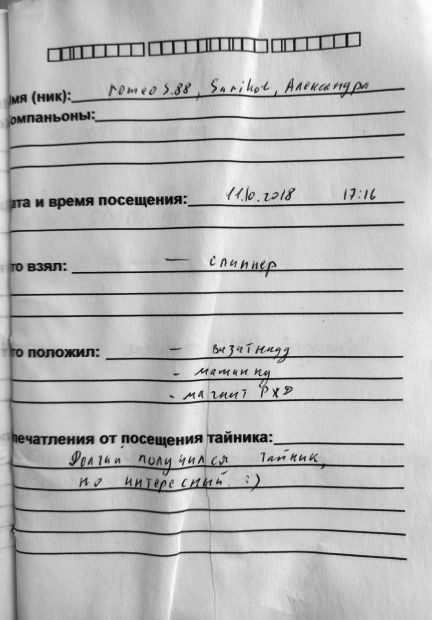 мя (ник): romeo5.88, Sarikot, Александра
омпаньоны:
ата и время посещения: 11.10.2018 17:16
то взял: — спиннер
то положил: –
- машинку
- магнит РЖД
печатления от посещения тайника:
Долгий получился тайник,
но интересный. :)